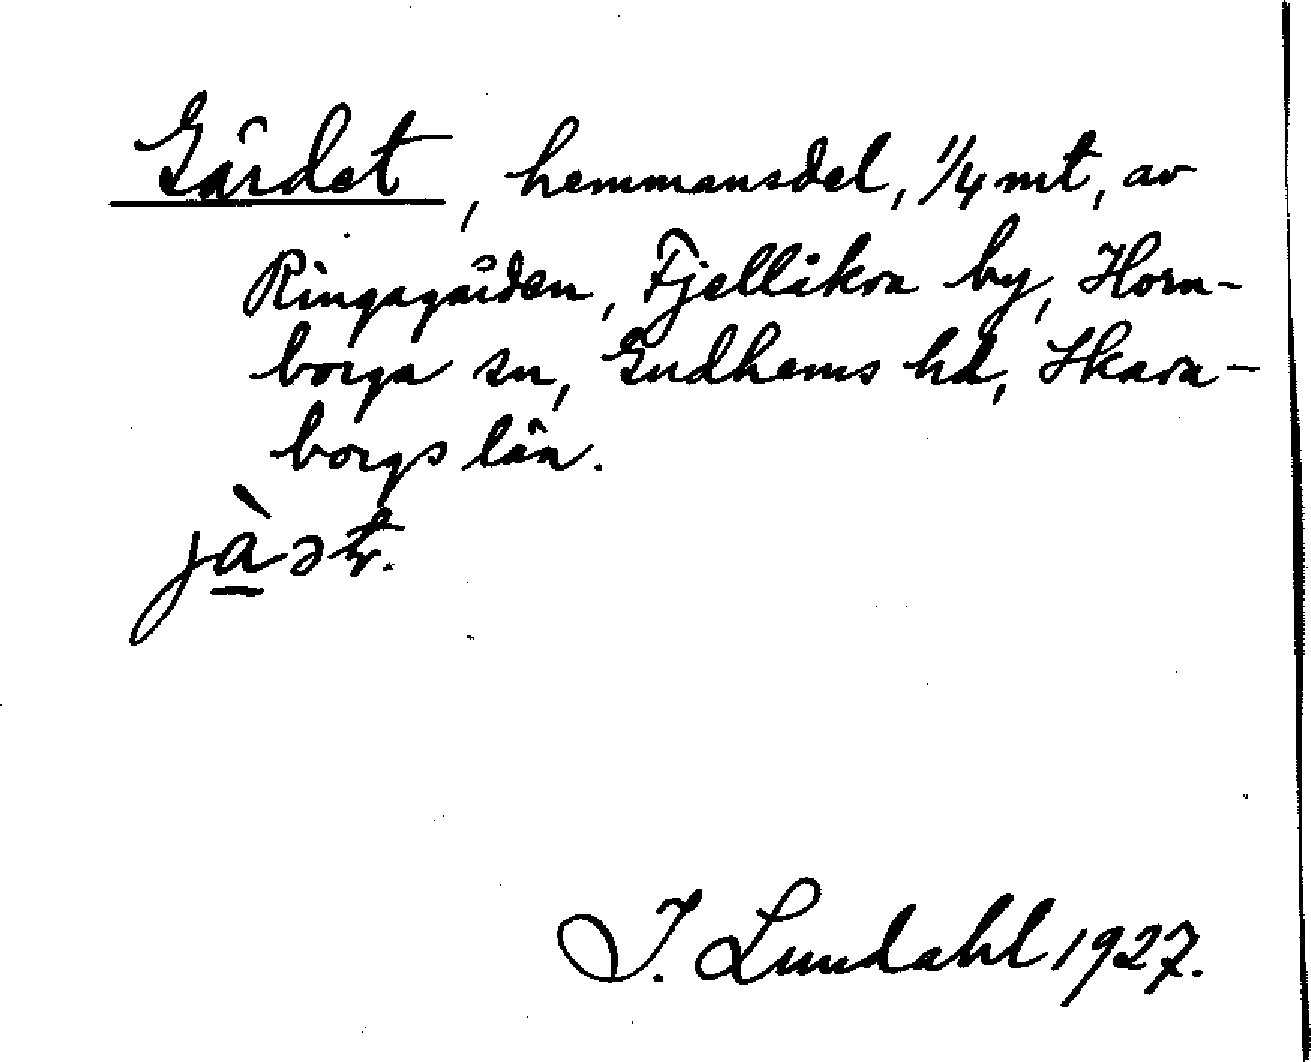 Gärdet, hemmansdel, 1/4 mt, av
Ringagården, Fjellikra by, Horn-
borga sn, Gudhems hd, Skara-
borgs län.
I. Lundahl 1927.